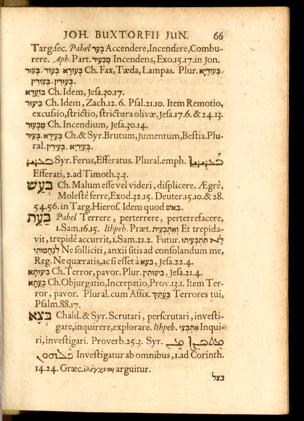 JOH. BUXTORFII JUN. 66
Targ. sec. Pahel בַּעֵר Accendere, Incendere, Combu-
rere. Aph. Part. מַבְעִיר Incendens, Exo. 15. 17. in Jon.
Ch. Fax, Tæda, Lampas. Plur.
Ch. Idem, Jesa. 50. 17.
Ch. Idem, Zach. 12. 6. Psal. 21. 10. Item Remotio,
excussio, strictio, strictura olivæ, Jesa. 17. 6. & 24. 13.
Ch. Incendium, Jesa. 30. 14.
Ch. & Syr. Brutum, Jumentum, Bestia. Plu-
ral.
Syr. Ferus, Efferatus. Plural. emph.
Efferati, 2. ad Timoth. 3. 3.
Ch. Malum esse vel videri, displicere. Ægrè,
Molestè ferre, Exod. 32. 15. Deuter. 15. 10. & 28.
54. 56. in Targ. Hierof. Idem quod באש
Pahel Terrere, perterrere, perterrefacere,
1. Sam. 16. 15. Ithpeh. Præt. Et trepida-
vit, trepidè accurrit, 1. Sam. 21. 2. Futur.
Ne solliciti, anxii sitis ad consolandum me,
Reg. Ne quæratis, ac si esset à בעא, Jesa. 22. 4.
Ch. Terror, pavor. Plur. Jesa. 21. 4.
Ch. Objurgatio, Increpatio, Prov. 13. 1. Item Ter-
ror, pavor. Plural. cum Affix. Terrores tui,
Psalm. 88. 17.
בְּצָא Chald. & Syr. Scrutari, perscrutari, investi-
gare, inquirere, explorare. Ithpeh. Inqui-
ri, investigari. Proverb. 25. 2. Syr.
Investigatur ab omnibus, 1. ad Corinth.
14. 24. Græc. arguitur.
בצל